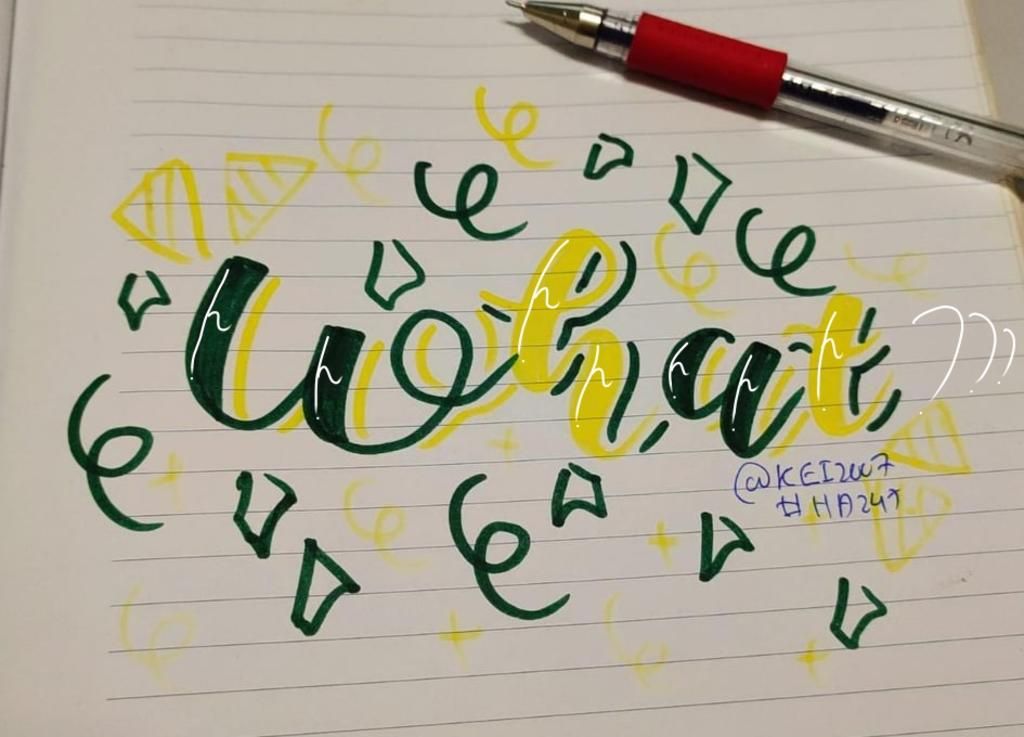 What???
@KEI2007
#HA247